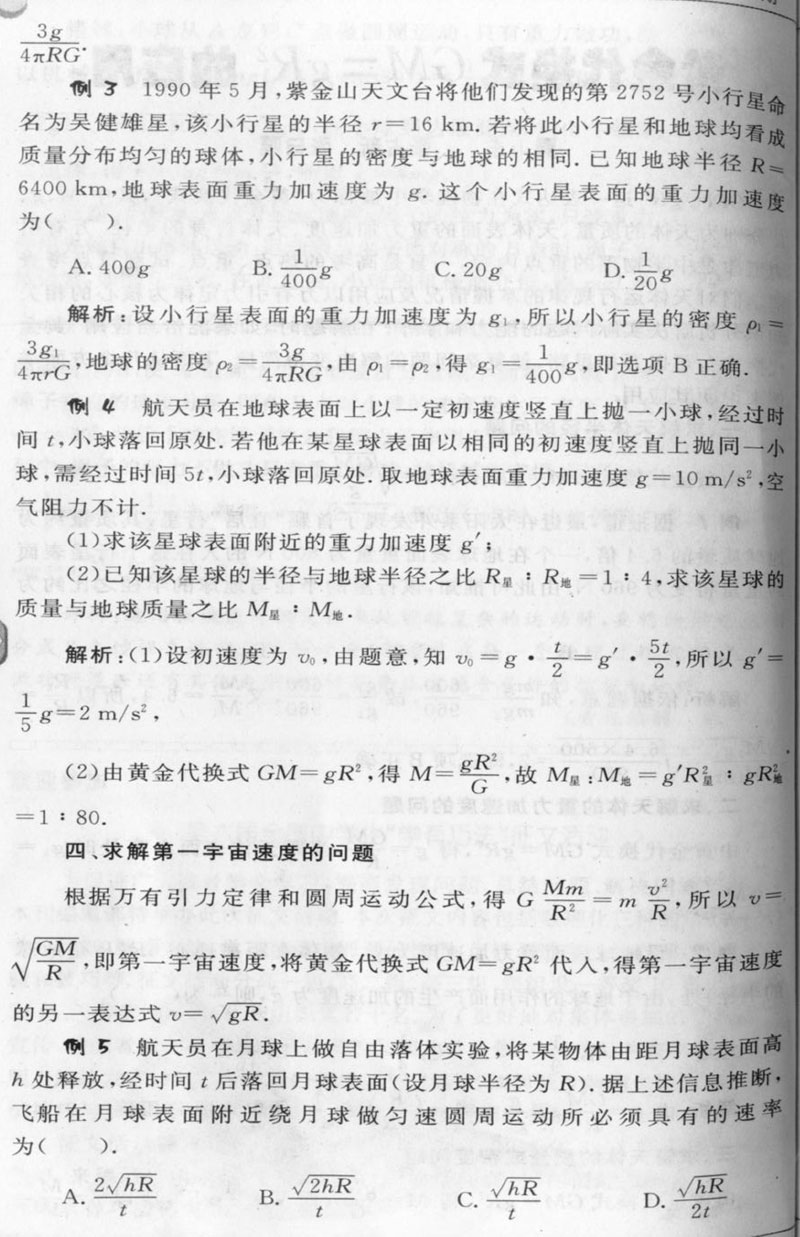 3g/4πRG.
例 3 1990 年 5 月,紫金山天文台将他们发现的第 2752 号小行星命
名为吴健雄星,该小行星的半径 r=16 km. 若将此小行星和地球均看成
质量分布均匀的球体,小行星的密度与地球的相同. 已知地球半径 R=
6400 km,地球表面重力加速度为 g. 这个小行星表面的重力加速度
为( ).
A. 400g B. 1/400 g C. 20g D. 1/20 g
解析:设小行星表面的重力加速度为 g₁,所以小行星的密度 ρ₁=
3g₁/4πrG,地球的密度 ρ₂=3g/4πRG,由 ρ₁=ρ₂,得 g₁=1/400 g,即选项 B 正确.
例 4 航天员在地球表面上以一定初速度竖直上抛一小球,经过时
间 t,小球落回原处. 若他在某星球表面以相同的初速度竖直上抛同一小
球,需经过时间 5t,小球落回原处. 取地球表面重力加速度 g=10 m/s²,空
气阻力不计.
(1)求该星球表面附近的重力加速度 g′;
(2)已知该星球的半径与地球半径之比 R星∶R地=1∶4,求该星球的
质量与地球质量之比 M星∶M地.
解析:(1)设初速度为 v₀,由题意,知 v₀=g·t/2=g′·5t/2,所以 g′=
1/5 g=2 m/s²,
(2)由黄金代换式 GM=gR²,得 M=gR²/G,故 M星∶M地=g′R²星∶gR²地
=1∶80.
四、求解第一宇宙速度的问题
根据万有引力定律和圆周运动公式,得 G Mm/R²=m v²/R,所以 v=
√(GM/R),即第一宇宙速度,将黄金代换式 GM=gR² 代入,得第一宇宙速度
的另一表达式 v=√gR.
例 5 航天员在月球上做自由落体实验,将某物体由距月球表面高
h 处释放,经时间 t 后落回月球表面(设月球半径为 R). 据上述信息推断,
飞船在月球表面附近绕月球做匀速圆周运动所必须具有的速率
为( ).
A. 2√hR/t B. √2hR/t C. √hR/t D. √hR/2t